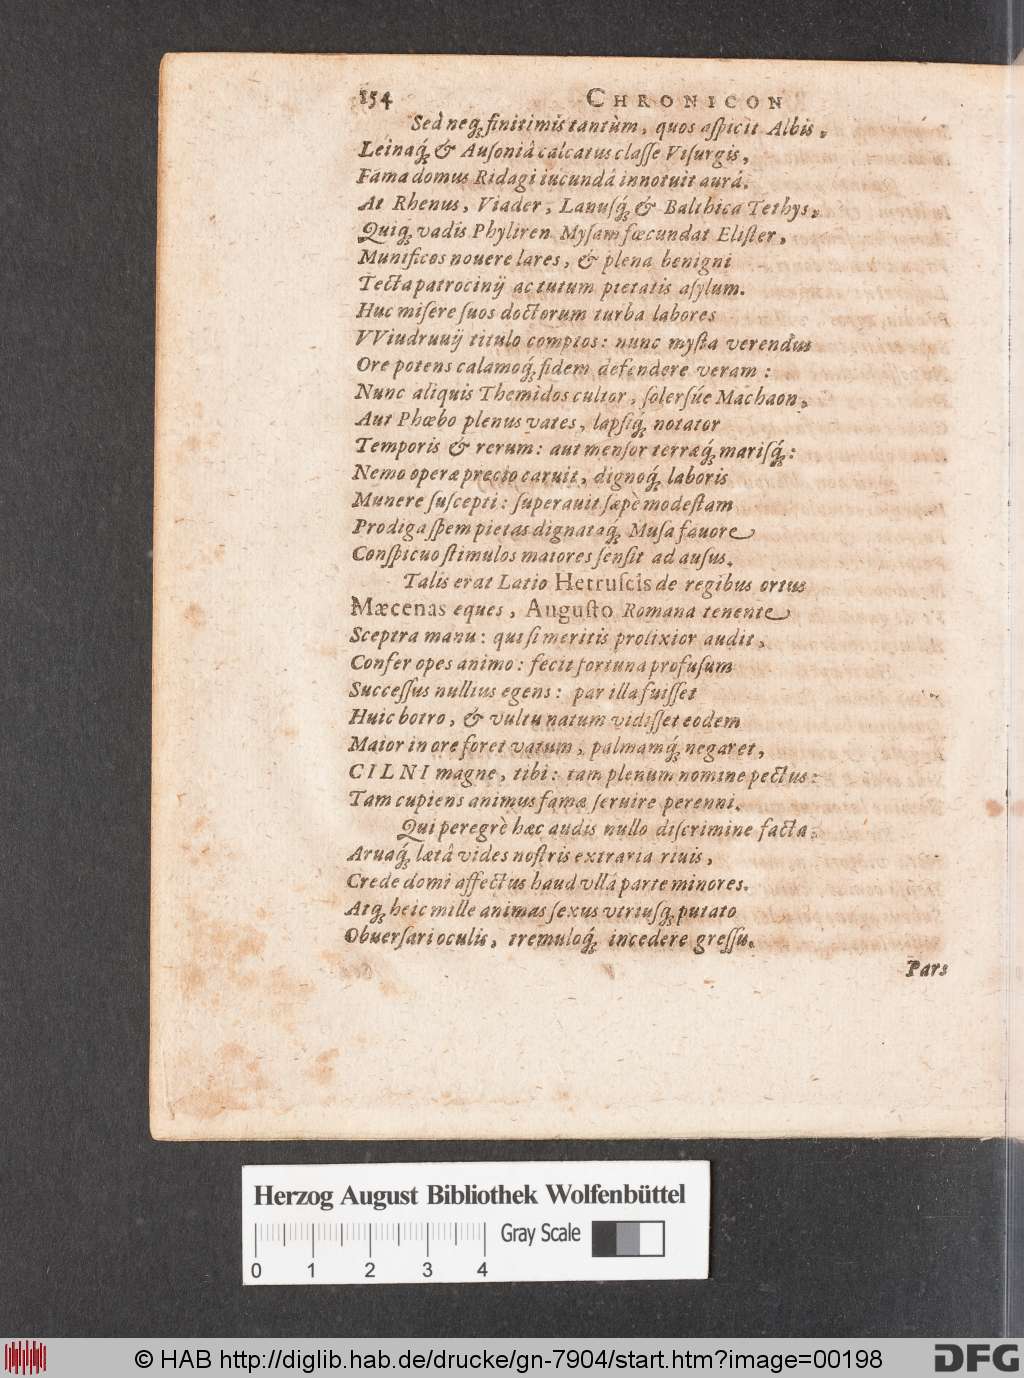 154 CHRONICON
Sed neq́; finitimis tantùm, quos aſpicit Albis,
Leinaq́; & Auſoniâ calcatus claſſe Viſurgis,
Fama domus Ridagi iucundâ innotuit aurâ.
At Rhenus, Viader, Lanuſq́; & Balthica Tethys,
Quiq́; vadis Phyliren Myſam fœcundat Eliſter,
Munificos nouere lares, & plena benigni
Tecta patrocinij ac tutum pietatis aſylum.
Huc miſere ſuos doctorum turba labores
VViudruuij titulo comptos: nunc myſta verendus
Ore potens calamoq́; fidem defendere veram:
Nunc aliquis Themidos cultor, ſolerſúe Machaon,
Aut Phœbo plenus vates, lapſiq́; notator
Temporis & rerum: aut menſor terræq́; mariſq́;:
Nemo operæ precio caruit, dignoq́; laboris
Munere ſuſcepti: ſuperauit ſæpè modeſtam
Prodiga ſpem pietas dignataq́; Muſa fauore
Conſpicuo ſtimulos maiores ſenſit ad auſus.
Talis erat Latio Hetruſcis de regibus ortus
Mæcenas eques, Auguſto Romana tenente
Sceptra manu: qui ſi meritis prolixior audit,
Confer opes animo: fecit fortuna profuſum
Succeſſus nullius egens: par illa fuiſſet
Huic botro, & vultu natum vidiſſet eodem
Maior in ore foret vatum, palmamq́; negaret,
CILNI magne, tibi: tam plenum nomine pectus:
Tam cupiens animus famæ ſeruire perenni.
Qui peregrè hæc audis nullo diſcrimine facta,
Aruaq́; lætâ vides noſtris extraria riuis,
Crede domi affectus haud vllâ parte minores.
Atq́; heic mille animas ſexus vtriuſq́; putato
Obuerſari oculis, tremuloq́; incedere greſſu.
Pars
Herzog August Bibliothek Wolfenbüttel
Gray Scale
0 1 2 3 4
© HAB http://diglib.hab.de/drucke/gn-7904/start.htm?image=00198
DFG